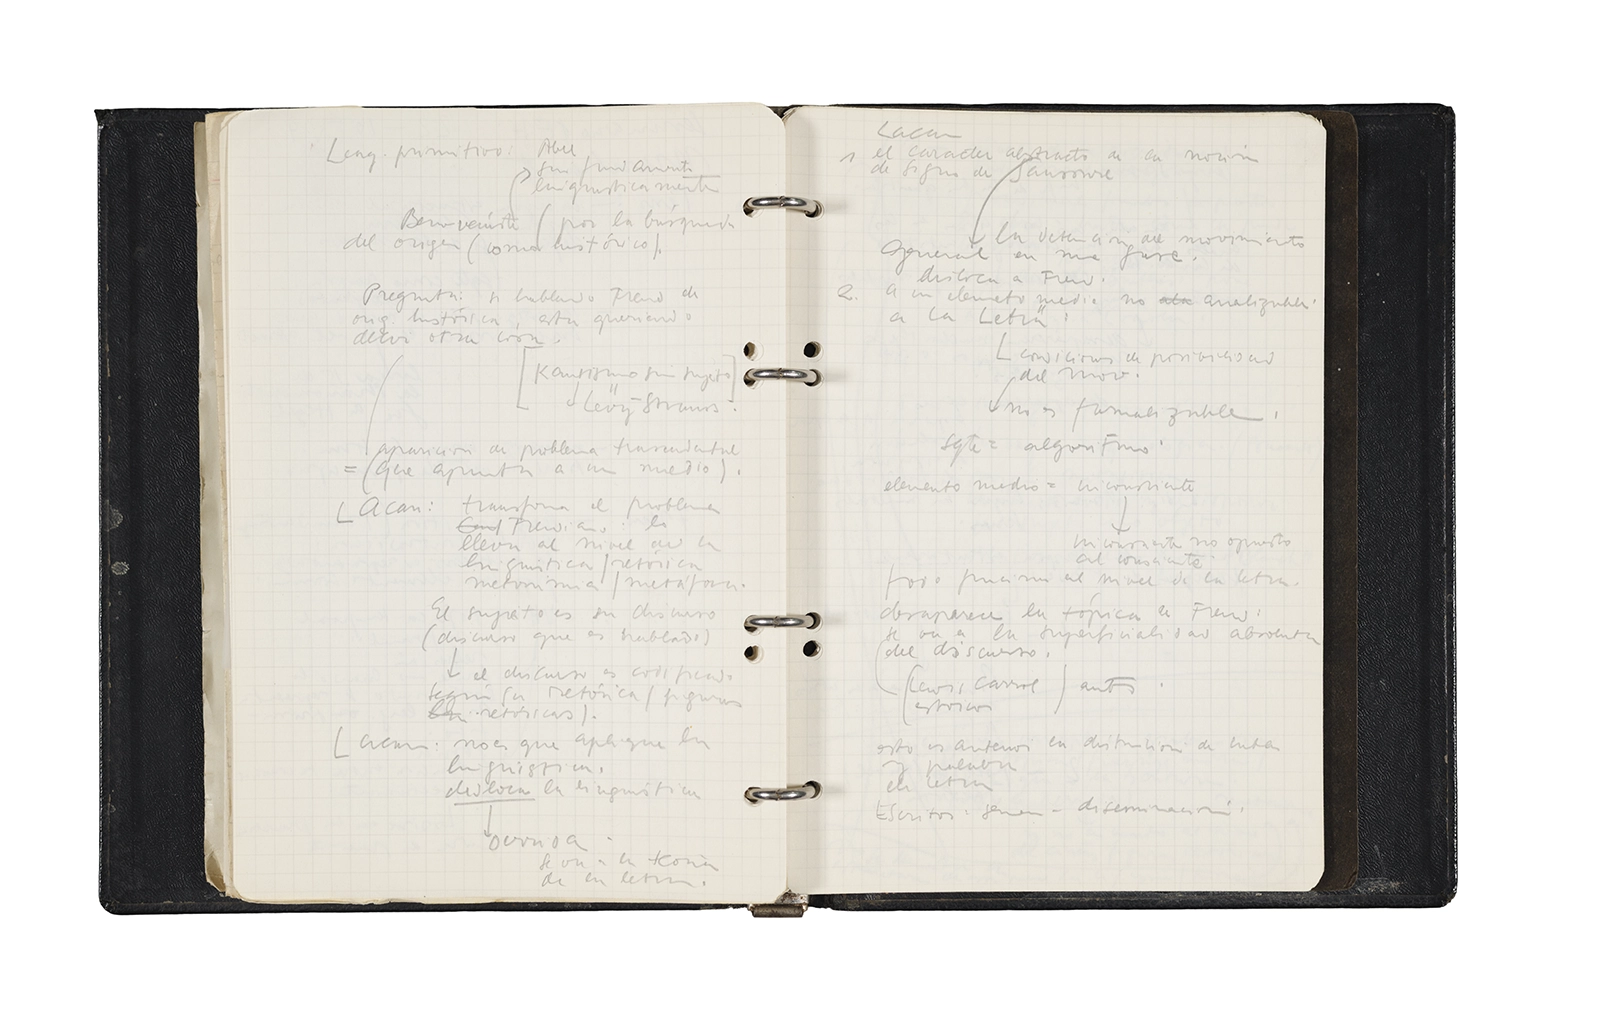 Leng. primitivo: Abel
sin fundamento
linguisticamente
Benveniste (por la búsqueda
del origen (como histórico).
Pregunta: si hablando Freud de
orig. histórica, esta queriendo
decir otra cosa.
[Kantismo sin sujeto]
Levy-Strauss.
aparicion de problema trascendental
= (que apunta a un medio).
Lacan: transforma el problema
Freudiano: lo
lleva al nivel de la
linguistica/retórica
metonimia/metáfora.
El sujeto es su discurso
(discurso que es hablado)
el discurso es codificado
según la retórica/figuras
retóricas).
Lacan: no es que aplique la
linguistica.
disloca la linguistica
se va a la teoria
de la letra.
Lacan
1 el caracter abstracto de la noción
de signo de Saussure
la detencion del movimiento
general en una fase.
disloca a Freud.
2. a un elemento medio no analizable:
a la "Letra":
condiciones de posibilidad
del mov.
no es formalizable.
sgte = algoritmo.
elemento medio = inconsciente
inconsciente no opuesto
al consciente
todo funciona al nivel de la letra.
desaparece la tópica de Freud:
se va a la superficialidad absoluta
del discurso.
(Lewis Carrol) antes
estoicos
esto es anterior a distincion de
y palabra
de letra
Escritos: semen - diseminación.